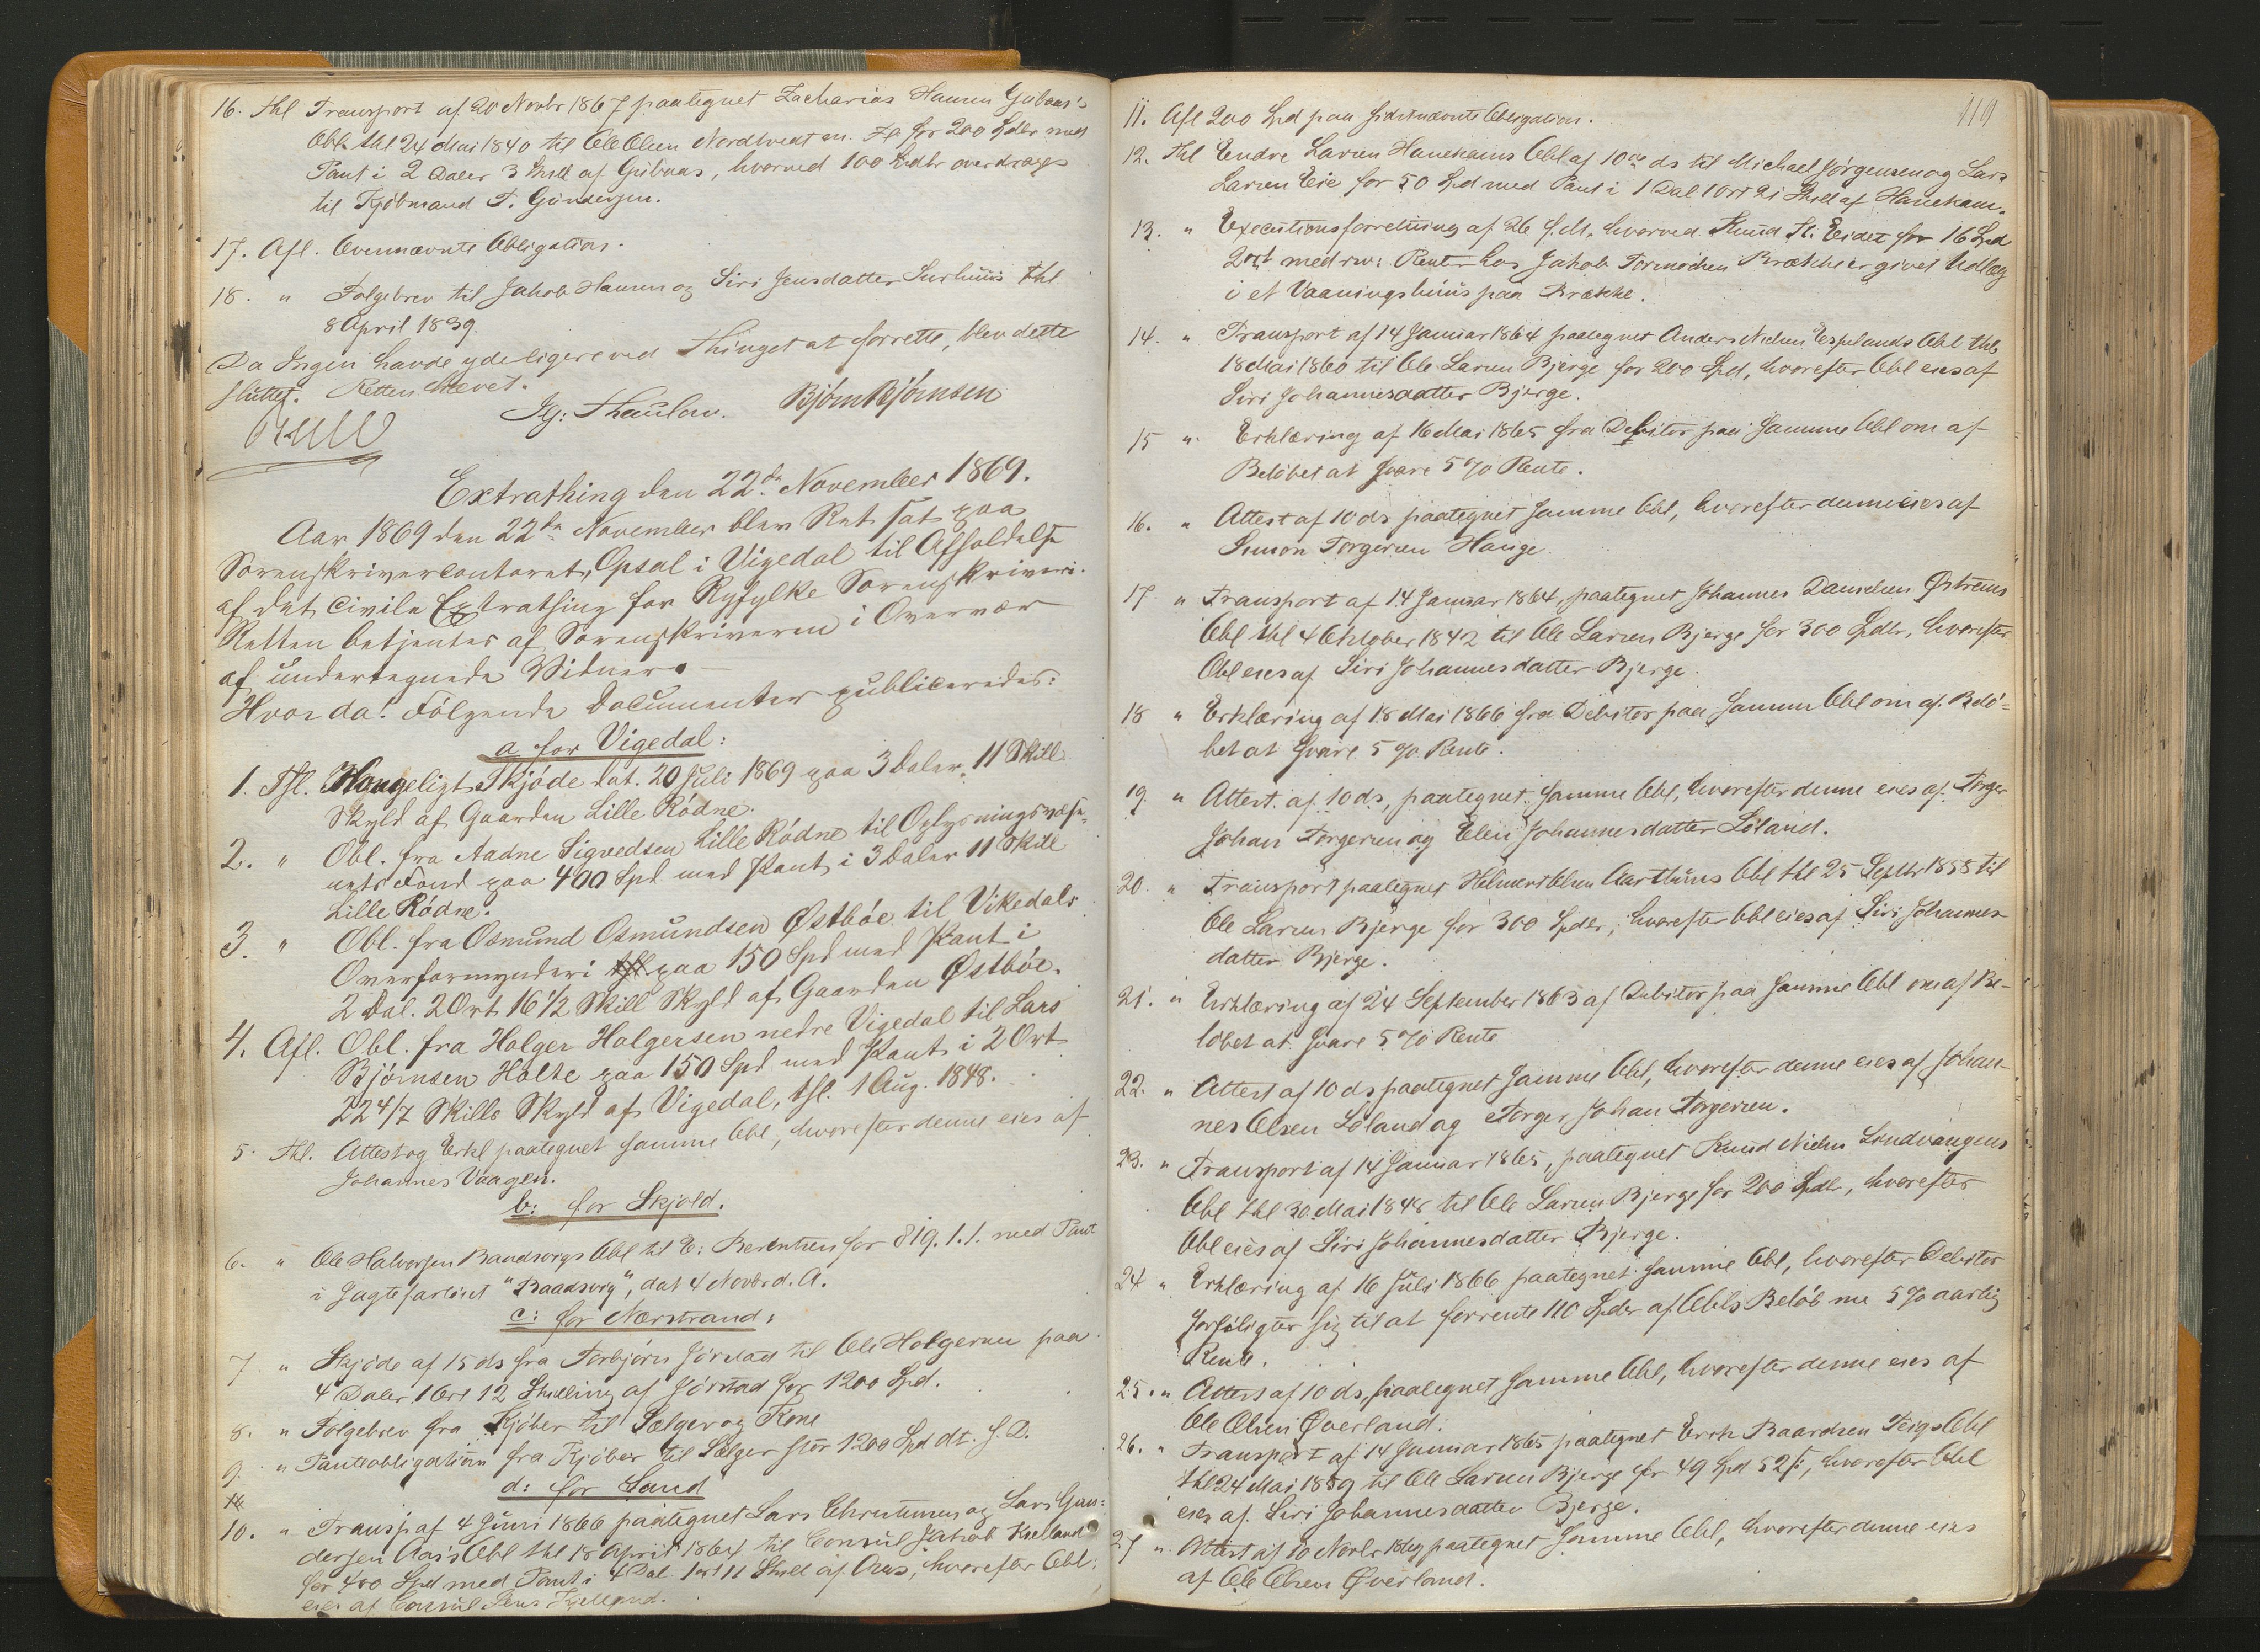 16. Thl Transport af 20 Novbr 1867 paategnet Zacharias Hansen Gribaas's
Obl. thl 24 Mai 1840 til Ole Olsen Nordtvedt for 200 Spdlr med
Pant i 2 Daler 3 Skill af Gribaas, hvorved 100 Spdlr overdrages
til Kjøbmand T. Gundersen.
17. Afl. Ovennævnte Obligation.
18. " Følgebrev til Jakob Hansen og Siri Jensdatter Surhuus thl
8 April 1839.
Da Ingen havde ydeligere ved Thinget at forrette, blev dette
sluttet. Retten hævet.
Thaulow. Bjørn Bjørnsen
Extrathing den 22de November 1869.
Aar 1869 den 22de November blev Ret sat paa
Sorenskrivercontoret, Opsal i Vigedal til Afholdelse
af det civile Extrathing for Ryfylke Sorenskriveri.
Retten betjentes af Sorenskriveren i Overvær
af undertegnede Vidner.
Hvor da! Følgende Documenter publiceredes:
a for Vigedal:
1. Thl. Kongeligt Skjøde dat. 20 Juli 1869 paa 3 Daler 11 Skill
Skyld af Gaarden Lille Rødne.
2. " Obl. fra Aadne Sigvedsen Lille Rødne til Oplysningsvæse-
nets Fond paa 400 Spd med Pant i 3 Daler 11 Skill
Lille Rødne.
3. " Obl. fra Osmund Osmundsen Østbøe til Vikedals
Overformynderi paa 150 Spd med Pant i
2 Dal. 2 Ort 16 1/2 Skill Skyld af Gaarden Østbøe.
4. Afl. Obl. fra Holger Holgersen nedre Vigedal til Lars
Bjørnsen Holte paa 150 Spd med Pant i 2 Ort
22 4/7 Skills Skyld af Vigedal, thl. 1 Aug. 1848.
5. Thl. Attest og Erkl paategnet samme Obl, hvorefter denne eies af
Johannes Vaagen.
b: for Skjold.
6. " Ole Halvorsen Baadsvigs Obl til E: Berentsen for 819. 1. 1. med Pant
i Jagtefartøiet "Baadsvig", dat 4 Novbr d. A.
c: for Nærstrand:
7 " Skjøde af 15 ds fra Torbjørn Jørstad til Ole Holgersen paa
4 Daler 1 Ort 12 Skilling af Jørstad for 1200 Spd.
8. " Følgebrev fra Kjøber til Sælger og Kone
9. " Panteobligation fra Kjøber til Sælger stor 1200 Spd dt. s. D.
d: for Sand
10. " Transp af 4 Juni 1866 paategnet Lars Christensen og Lars Gun:
dersen Aas's Obl thl 18 April 1864 til Consul Jakob Kielland
for 400 Spd med Pant i 4 Dal 1 ort 11 Skill af Aas, hvorefter Obl:
eies af Consul Jens Kielland.
119
11. Afl 200 Spd paa sidstnævnte Obligation.
12. Thl Endre Larsen Hanekams Obl af 10de ds til Michael Jørgensen og Lars
Larsen Eie for 50 Spd med Pant i 1 Dal 1 Ort 21 Skill af Hanekam.
13. " Executionsforretning af 26 f. M. hvorved Knud H. Eidet for 16 Spd
2 ort med rw: Renter hos Jakob Tormodsen Brække er givet Udlæg
i et Vaaningshuus paa Brække.
14. " Transport af 14 Januar 1864 paategnet Anders Nielsen Espelands Obl thl
18 Mai 1860 til Ole Larsen Bjerge for 200 Spd, hvorefter Obl eies af
Siri Johannesdatter Bjerge.
15 " Erklæring af 16 Mai 1865 fra Debitor paa samme Obl om af
Beløbet at svare 5 % Rente.
16. " Attest af 10 ds paategnet samme Obl, hvorefter denne eies af
Simon Torgersen Hauge.
17 " Transport af 14 Januar 1864, paategnet Johannes Danielsen Østrems
Obl thl 4 Oktober 1842 til Ole Larsen Bjerge for 300 Spdlr, hvorefter
Obl eies af Siri Johannesdatter Bjerge.
18 " Erklæring af 18 Mai 1866 fra Debitor paa samme Obl om af Belø-
bet at svare 5 % Rente.
19. " Attest af 10 ds, paategnet samme Obl, hvorefter denne eies af Torger
Johan Torgersen og Elen Johannesdatter Løland.
20. " Transport paategnet Helmert Olsen Aarthuns Obl thl 25 Septbr 1858 til
Ole Larsen Bjerge for 300 Spdlr, hvorefter Obl eies af Siri Johannes-
datter Bjerge.
21. " Erklæring af 24 September 1863 af Debitor paa samme Obl om af Be-
løbet at svare 5 % Rente
22. " Attest af 10 ds paategnet samme Obl, hvorefter denne eies af Johan-
nes Olsen Løland og Torger Johan Torgersen.
23. " Transport af 14 Januar 1865, paategnet Knud Nielsen Sandvangens
Obl thl 30 Mai 1848 til Ole Larsen Bjerge for 200 Spdlr, hvorefter
Obl eies af Siri Johannesdatter Bjerge.
24 " Erklæring af 16 Juli 1866 paategnet samme Obl, hvorefter Debitor
forpligter sig til at forrente 110 Spdlr af Obls Beløb me 5 % aarlig
Rente.
25. " Attest af 10 ds, paategnet samme Obl, hvorefter denne eies af
Ole Olsen Øverland.
26. " Transport af 14 Januar 1865 paategnet Erik Baardsen Teigs Obl
thl 24 Mai 1859 til Ole Larsen Bjerge for 49 Spd 52 s, hvorefter Obl
eies af Siri Johannesdatter Bjerge.
27 " Attest af 10 Novbr 1869 paategnet samme Obl, hvorefter denne eies
af Ole Olsen Øverland.